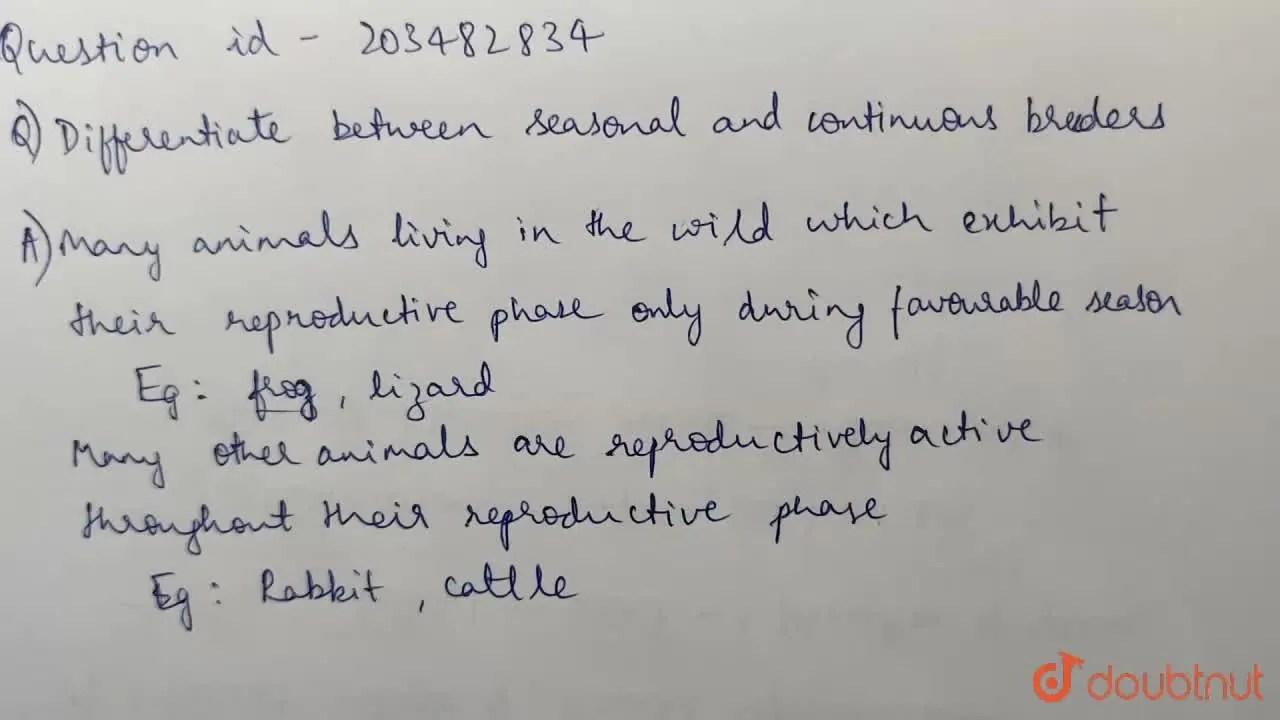 Question id - 203482834
Q) Differentiate between seasonal and continuous breeders
A) Many animals living in the wild which exhibit
their reproductive phase only during favourable season
Eg: frog, lizard
Many other animals are reproductively active
throughout their reproductive phase
Eg: Rabbit, cattle
doubtnut